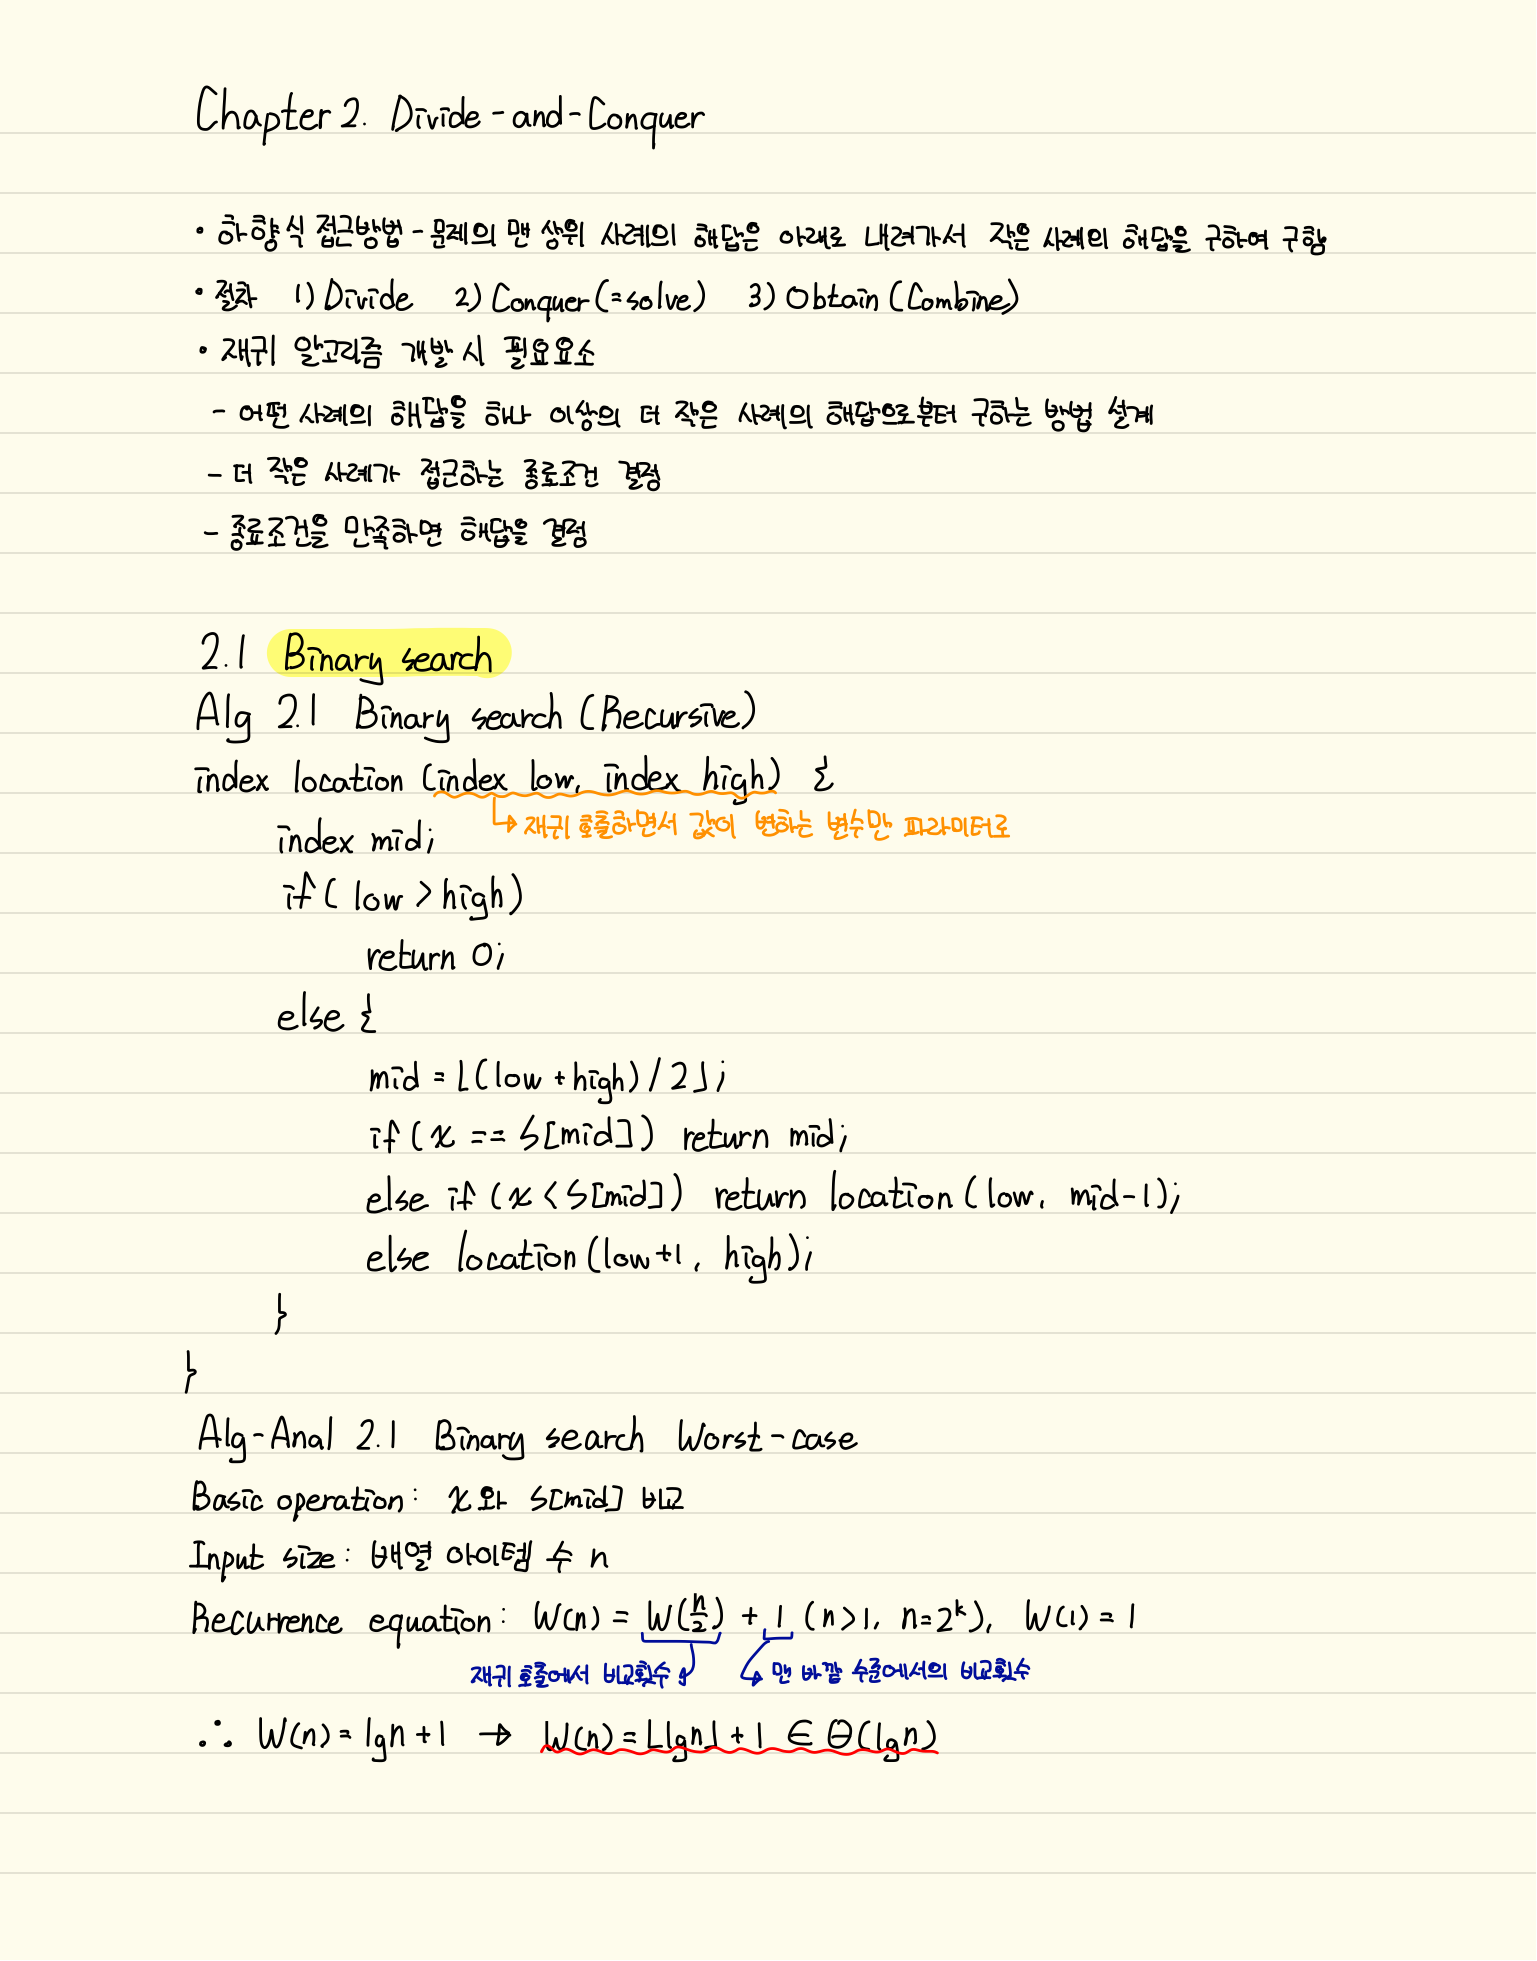 Chapter 2. Divide-and-Conquer
• 하향식 접근방법 - 문제의 맨 상위 사례의 해답은 아래로 내려가서 작은 사례의 해답을 구하여 구함
• 절차 1) Divide 2) Conquer (=solve) 3) Obtain (Combine)
• 재귀 알고리즘 개발 시 필요요소
- 어떤 사례의 해답을 하나 이상의 더 작은 사례의 해답으로부터 구하는 방법 설계
- 더 작은 사례가 접근하는 종료조건 결정
- 종료조건을 만족하면 해답을 결정
2.1 Binary search
Alg 2.1 Binary search (Recursive)
index location (index low, index high) {
↳ 재귀 호출하면서 값이 변하는 변수만 파라미터로
index mid;
if ( low > high)
return 0;
else {
mid = ⌊(low + high) / 2⌋;
if ( x == S[mid]) return mid;
else if ( x < S[mid]) return location (low, mid-1);
else location (low+1, high);
}
}
Alg-Anal 2.1 Binary search Worst-case
Basic operation: x와 S[mid] 비교
Input size: 배열 아이템 수 n
Recurrence equation: W(n) = W(n/2) + 1 (n>1, n=2^k), W(1) = 1
재귀 호출에서 비교횟수 맨 바깥 수준에서의 비교횟수
∴ W(n) = lgn + 1 → W(n) = ⌊lgn⌋ + 1 ∈ Θ(lgn)